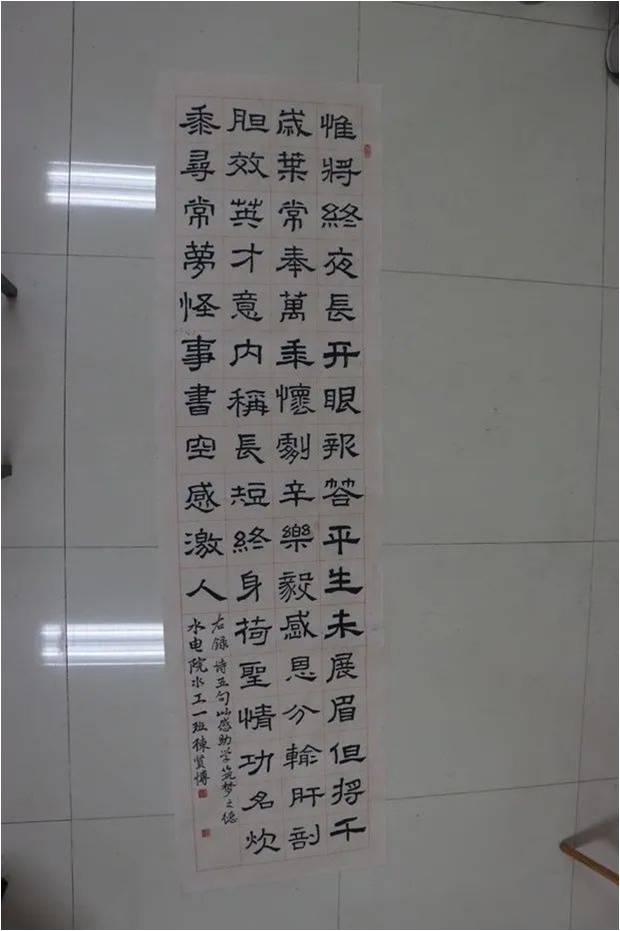 惟將終夜長开眼報答平生未展眉但將千
歲葉常奉萬秊懷劇辛樂毅感恩分輸肝剖
胆效英才意内稱長短終身荷聖情功名炊
黍尋常夢怪事書空感激人
右録詩五句以感助学筑梦之德
水电院水工一班陳賢博